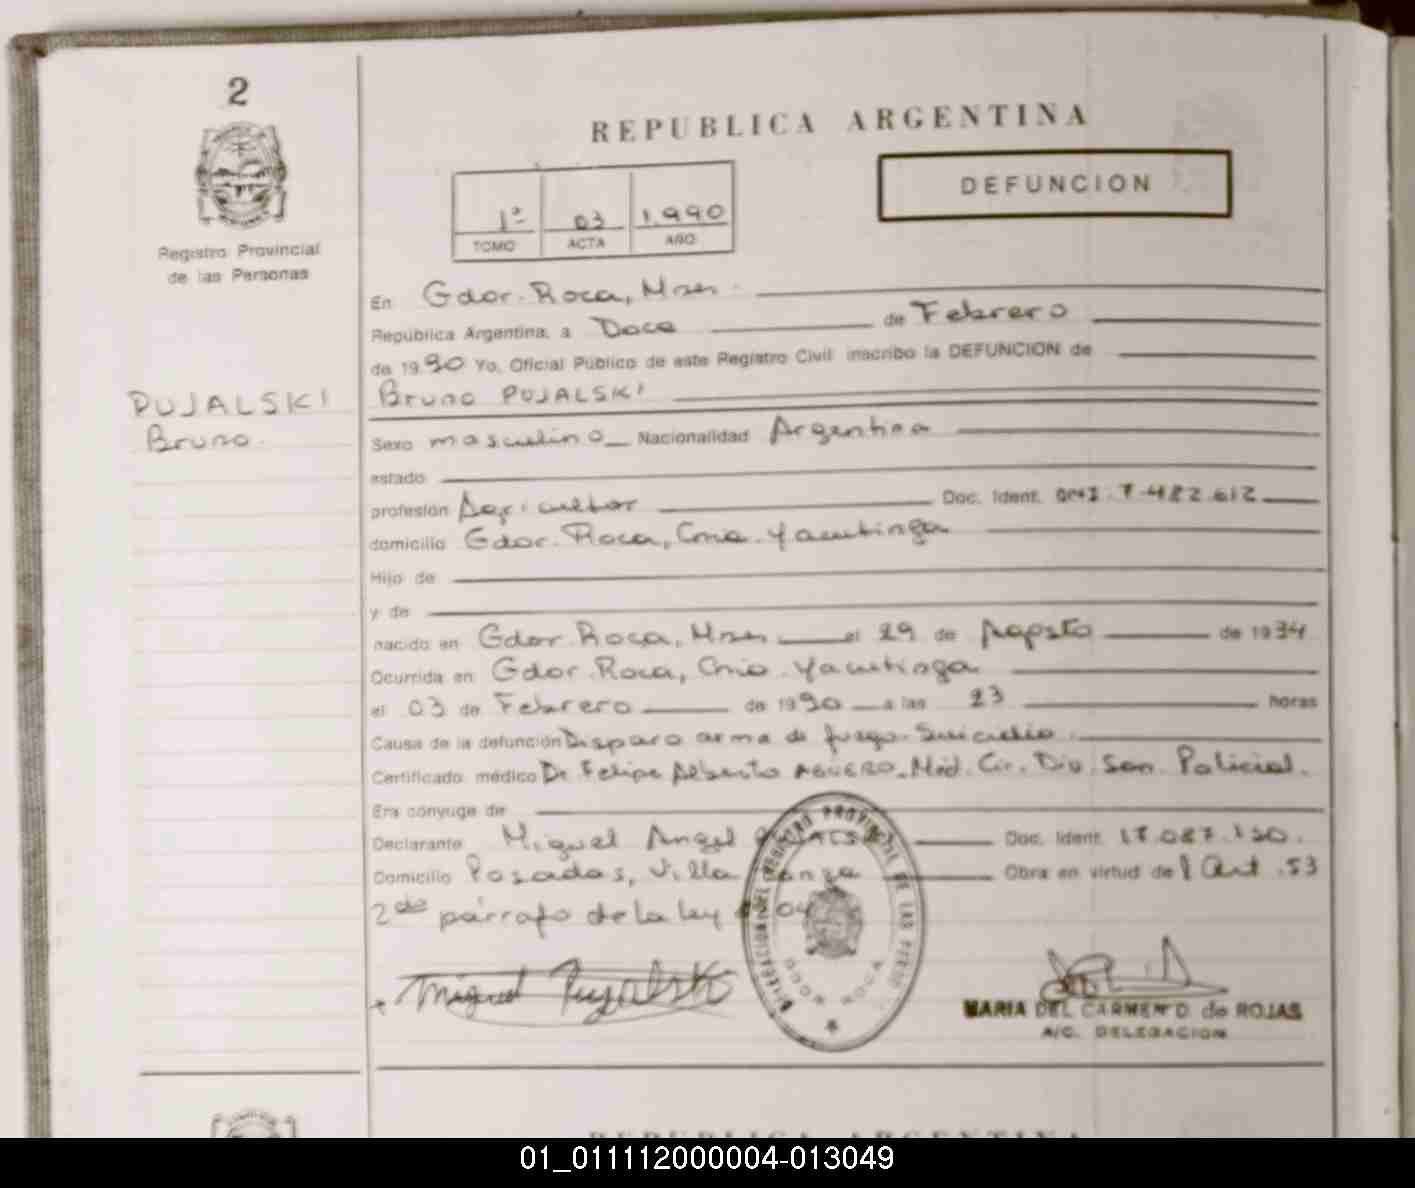 2
Registro Provincial
de las Personas
PUJALSKI
Bruno.
REPUBLICA ARGENTINA
DEFUNCION
1º 03 1.990
TOMO ACTA AÑO
En Gdor. Roca, Mnes.
República Argentina, a Doce de Febrero
de 1990 Yo, Oficial Público de este Registro Civil inscribo la DEFUNCION de
Bruno PUJALSKI
Sexo masculino Nacionalidad Argentina
estado
profesión Agricultor Doc. Ident. DNI. 7.482.612
domicilio Gdor. Roca, Cnia. Yacutinga
Hijo de
y de
nacido en Gdor. Roca, Mnes el 29 de Agosto de 1934
Ocurrida en Gdor. Roca, Cnia. Yacutinga
el 03 de Febrero de 1990 a las 23 horas
Causa de la defunción Disparo arma de fuego. Suicidio.
Certificado médico Dr Felipe Alberto AGUERO. Méd. Cir. Div. San. Policial.
Era cónyuge de
Declarante Miguel Angel Doc. Ident. 17.087.130.
Domicilio Posadas, Villa Obra en virtud del Art. 53
2do párrafo de la ley
Miguel Pujalski
DELEGACION DEL REGISTRO PROVINCIAL DE LAS PERSO
GDOR ROCA
MARIA DEL CARMEN D. de ROJAS
A/C. DELEGACION
REPUBLICA ARGENTINA
01_011112000004-013049